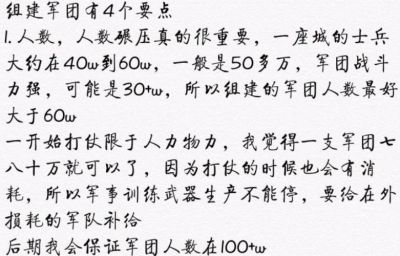 组建军团有4个要点
1.人数，人数碾压真的很重要，一座城的士兵
大约在40w到60w，一般是50多万，军团战斗
力强，可能是30+w，所以组建的军团人数最好
大于60w
一开始打仗限于人力物力，我觉得一支军团七
八十万就可以了，因为打仗的时候也会有消
耗，所以军事训练武器生产不能停，要给在外
损耗的军队补给
后期我会保证军团人数在100+w